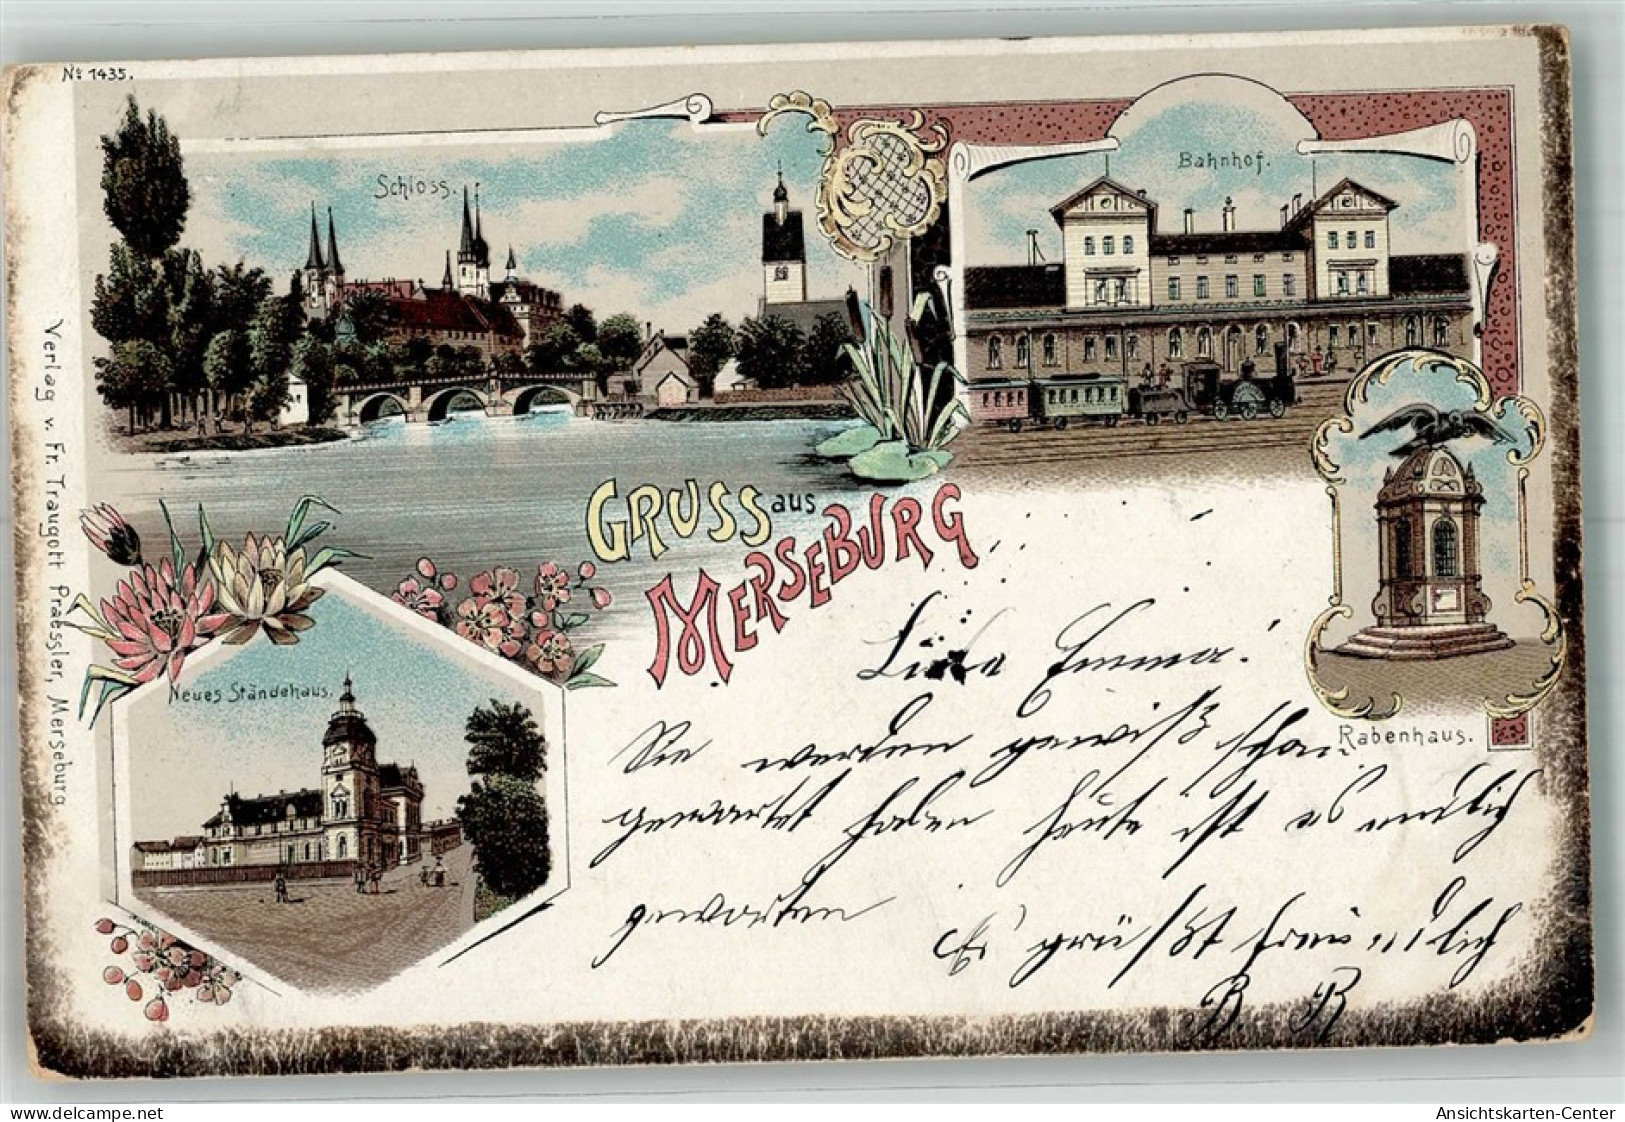 No 1435.
Schloss.
Bahnhof.
GRUSS aus
MERSEBURG
Neues Ständehaus.
Rabenhaus.
Verlag v. Fr. Traugott Praessler, Merseburg
Emma!
Sie werden gewiß schon
gewartet haben heute ist es endlich
geworden
Es grüßt freundlich
B. R
delcampe.net
Ansichtskarten-Center